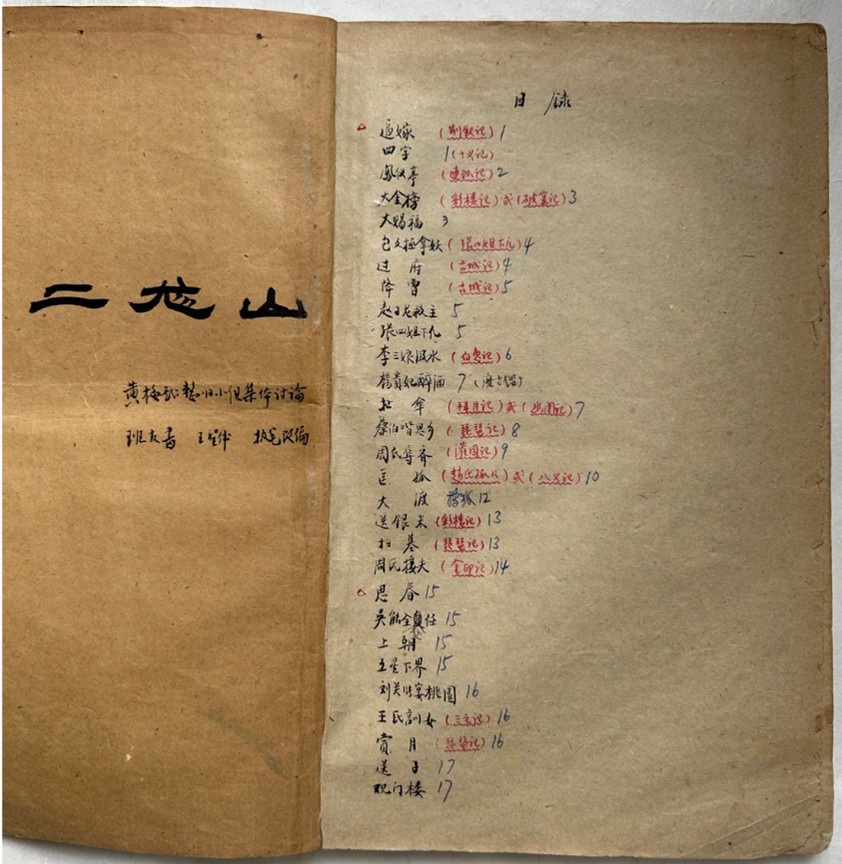 二龙山
黄梅戏整旧小组集体讨论
班友书 王兆乾 执笔改编
目 录
逼嫁 (荆钗记) 1
四字 1 (十义记)
凤仪亭 (连环记) 2
大金榜 (彩楼记) 或 (破窑记) 3
大赐福 3
包文拯拿妖 (张四姐下凡) 4
过府 (古城记) 4
降曹 (古城记) 5
赵子龙救主 5
张四姐下凡 5
李三娘汲水 (白兔记) 6
杨贵妃醉酒 7
扯伞 (拜月记) 或 (幽闺记) 7
蔡伯喈思乡 (琵琶记) 8
周氏辱斋 9
匡孤 (赵氏孤儿) 或 (八义记) 10
大渡 12
送银米 (彩楼记) 13
扫墓 (琵琶记) 13
周氏接夫 (金印记) 14
思春 15
吴能全复任 15
上朝 15
五星下界 15
刘关张宴桃园 16
王氏训女 (三元记) 16
赏月 (琵琶记) 16
送子 17
观门楼 17